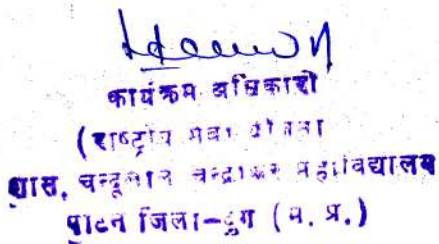 कार्यक्रम अधिकारी
(राष्ट्रीय सेवा योजना
शास. चन्दूलाल चन्द्राकर महाविद्यालय
पाटन जिला-दुर्ग (म. प्र.)